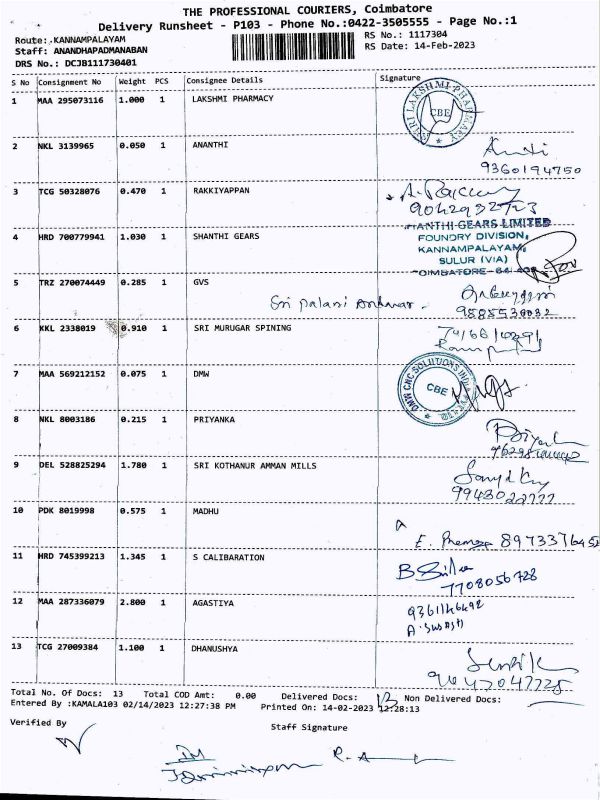 THE PROFESSIONAL COURIERS, Coimbatore
Delivery Runsheet - P103 - Phone No.:0422-3505555 - Page No.:1
Route: KANNAMPALAYAM
RS No.: 1117304
Staff: ANANDHAPADMANABAN
RS Date: 14-Feb-2023
DRS No.: DCJB111730401
S No Consignment No Weight PCS Consignee Details Signature
1 MAA 295073116 1.000 1 LAKSHMI PHARMACY
SRI LAKSHMI PHARMACY CBE
2 NKL 3139965 0.050 1 ANANTHI
9360194750
3 TCG 50328076 0.470 1 RAKKIYAPPAN
4 HRD 700779941 1.030 1 SHANTHI GEARS
ANTHI GEARS LIMITED
FOUNDRY DIVISION,
KANNAMPALAYAM,
SULUR (VIA)
5 TRZ 270074449 0.285 1 GVS
Sri Palani
6 KKL 2338019 0.910 1 SRI MURUGAR SPINING
7 MAA 569212152 0.075 1 DMW
DMW CNC SOLUTIONS CBE
8 NKL 8003186 0.215 1 PRIYANKA
9 DEL 528825294 1.780 1 SRI KOTHANUR AMMAN MILLS
10 PDK 8019998 0.575 1 MADHU
11 HRD 745399213 1.345 1 S CALIBARATION
7708056728
12 MAA 287336079 2.800 1 AGASTIYA
13 TCG 27009384 1.100 1 DHANUSHYA
Total No. Of Docs: 13 Total COD Amt: 0.00 Delivered Docs: 13 Non Delivered Docs:
Entered By :KAMALA103 02/14/2023 12:27:38 PM Printed On: 14-02-2023 12:28:13
Verified By
Staff Signature